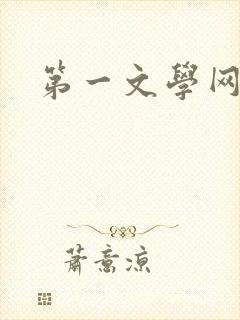 第一文學网
蕭意凉